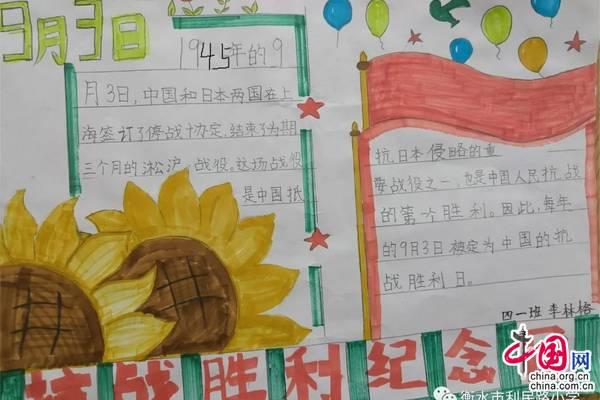 9月3日
1945年的9
月3日,中国和日本两国在上
海签订了停战协定,结束了为期
三个月的淞沪战役。这场战役
是中国抵
抗日本侵略的重
要战役之一,也是中国人民抗战
的第一个胜利。因此,每年
的9月3日被定为中国的抗
战胜利日。
四一班 李林格
抗战胜利纪念日
中国网
www.china.org.cn
www.china.com.cn
衡水市利民路小学